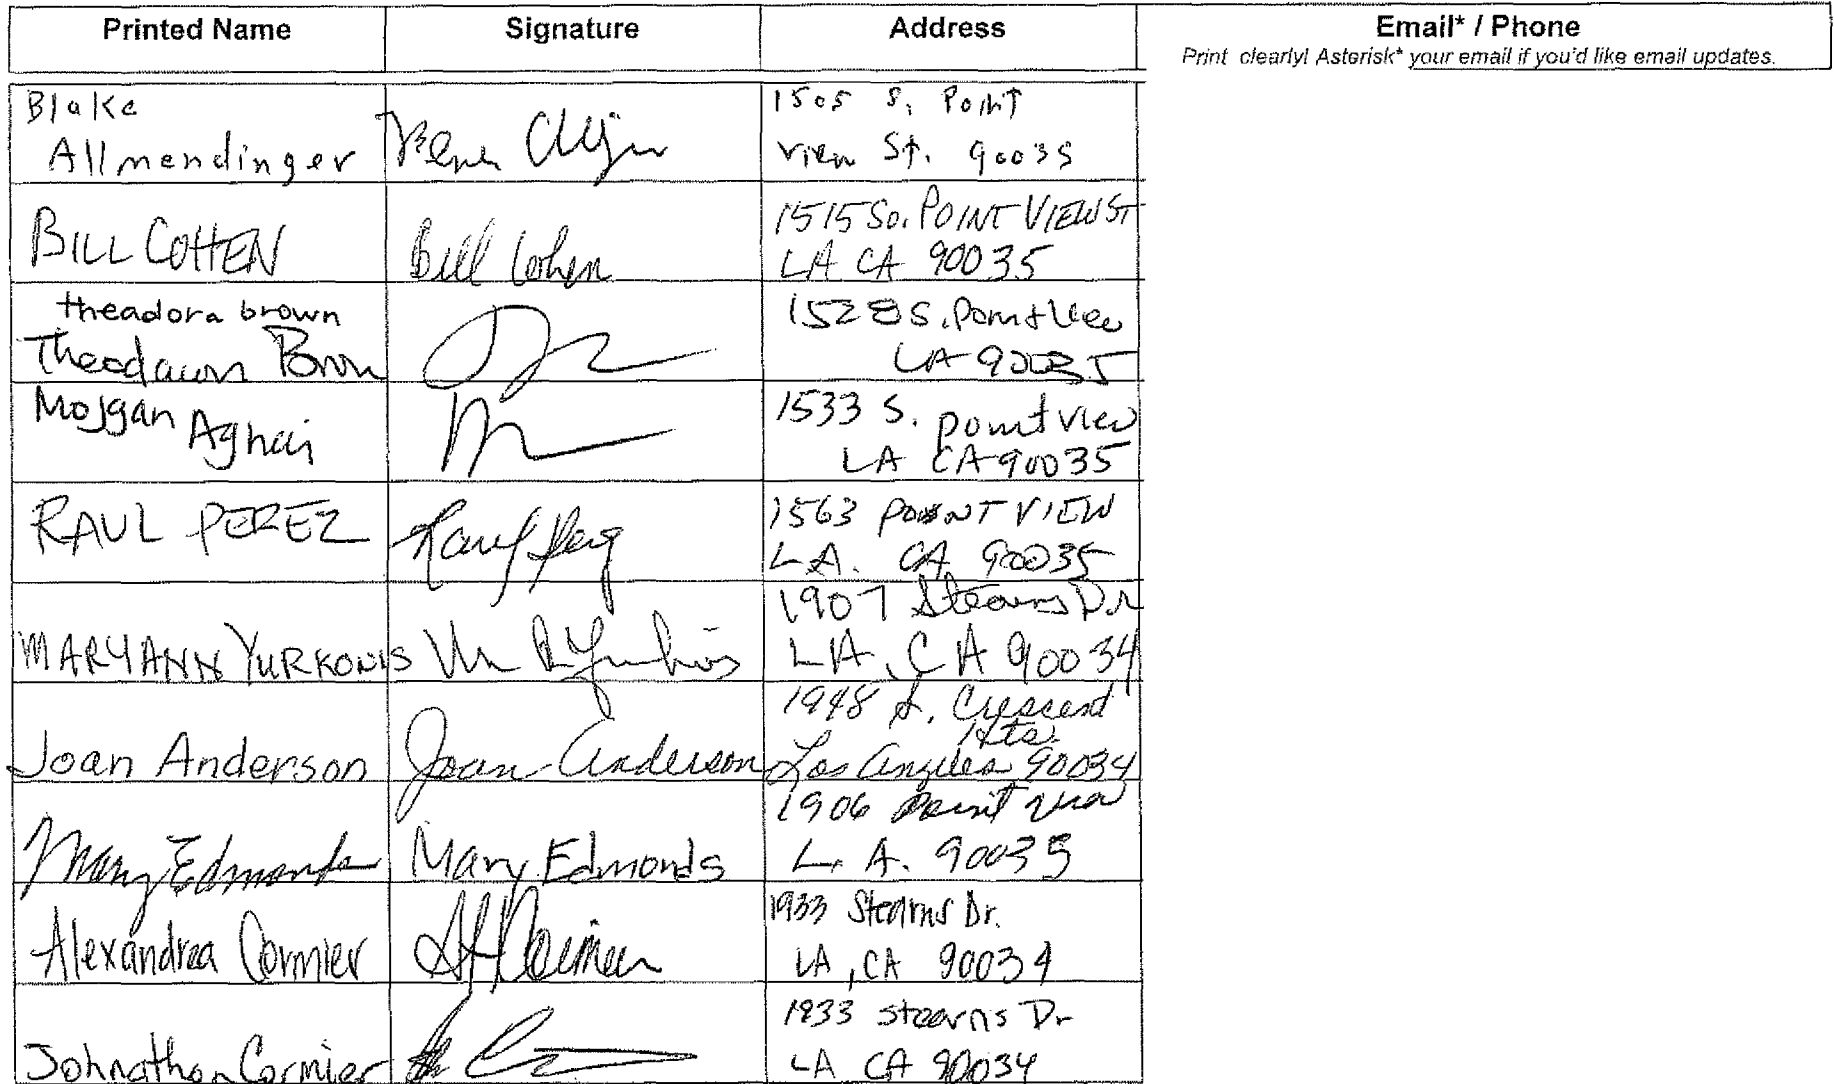 Printed Name Signature Address Email* / Phone
Print clearly! Asterisk* your email if you'd like email updates.
Blake
Allmendinger
1505 S. Point
View St. 90035
BILL COHEN Bill Cohen
1515 So. POINT VIEW ST
LA CA 90035
theadora brown
1528 S. Point View
LA 90035
Mojgan Aghai
1533 S. point view
LA CA 90035
RAUL PEREZ Raul Perez
1563 POINT VIEW
L.A. CA 90035
MARYANN YURKONIS
1907 Stearns Dr
LA, CA 90034
Joan Anderson Joan Anderson
1948 S. Crescent
Hts.
Los Angeles 90034
Mary Edmonds Mary Edmonds
1906 Point View
L. A. 90035
Alexandrea Cormier
1933 Stearns Dr.
LA, CA 90034
Johnathon Cormier
1933 stearns Dr
LA CA 90034